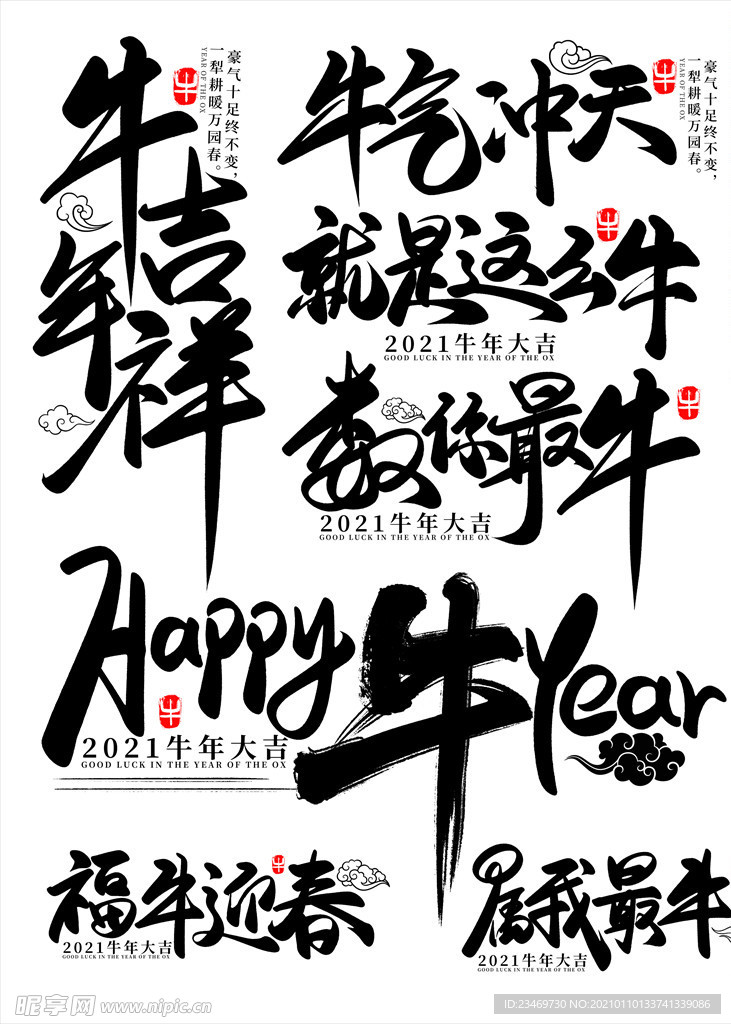 牛年吉祥
豪气十足终不变，
一犁耕暖万园春。
YEAR OF THE OX
牛
牛气冲天
牛
豪气十足终不变，
一犁耕暖万园春。
YEAR OF THE OX
就是这么牛
牛
2021牛年大吉
GOOD LUCK IN THE YEAR OF THE OX
数你最牛
牛
2021牛年大吉
GOOD LUCK IN THE YEAR OF THE OX
Happy 牛 Year
牛
2021牛年大吉
GOOD LUCK IN THE YEAR OF THE OX
福牛迎春
牛
2021牛年大吉
GOOD LUCK IN THE YEAR OF THE OX
属我最牛
2021牛年大吉
GOOD LUCK IN THE YEAR OF THE OX
昵享网 www.nipic.cn
ID:23469730 NO:20210110133741339086